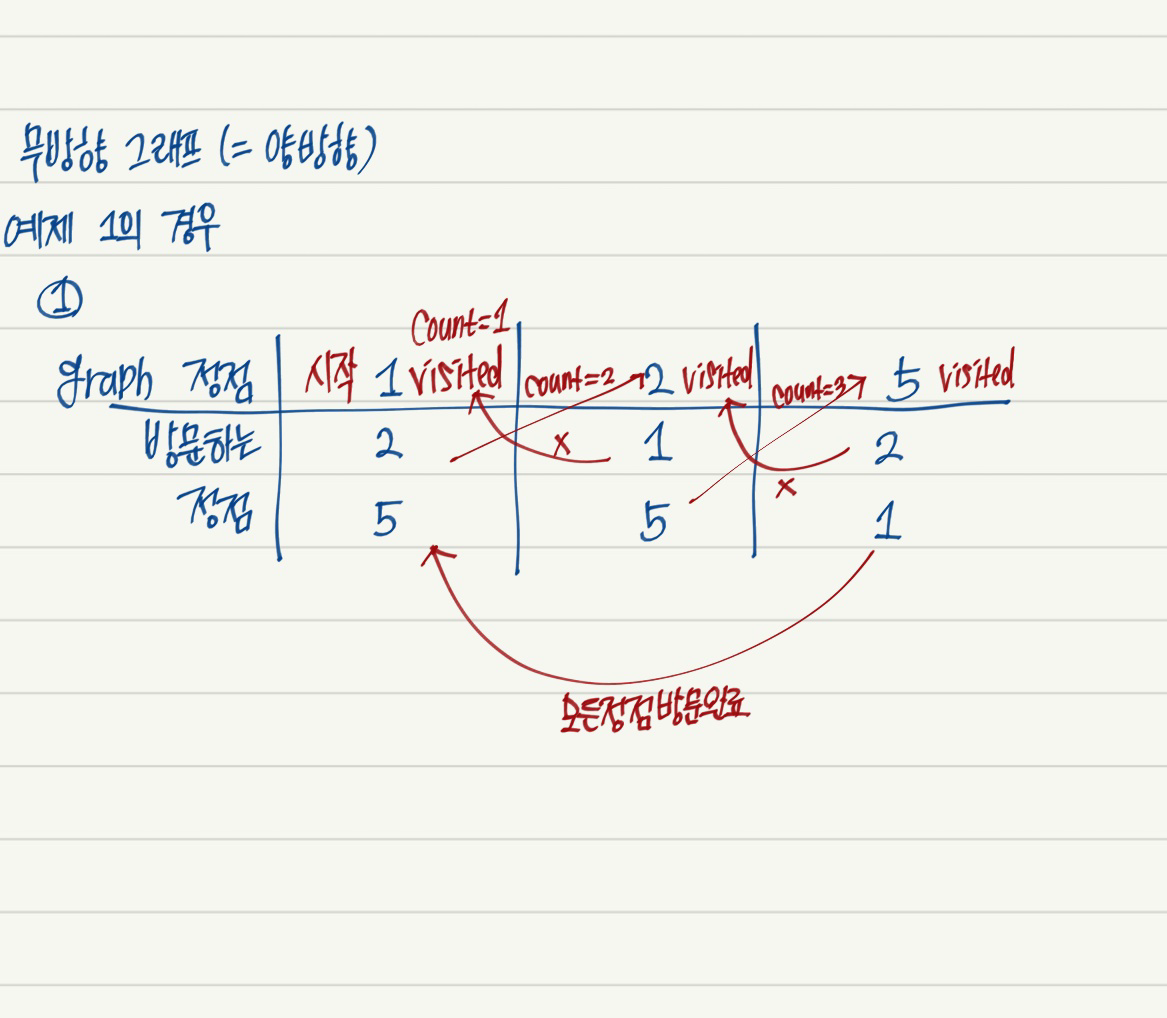 무방향 그래프 (= 양방향)
예제 1의 경우
①
Count=1
graph 정점 시작 1 visited count=2 2 visited count=3 5 visited
방문하는 2 x 1 2
정점 5 5 x 1
모든정점방문완료